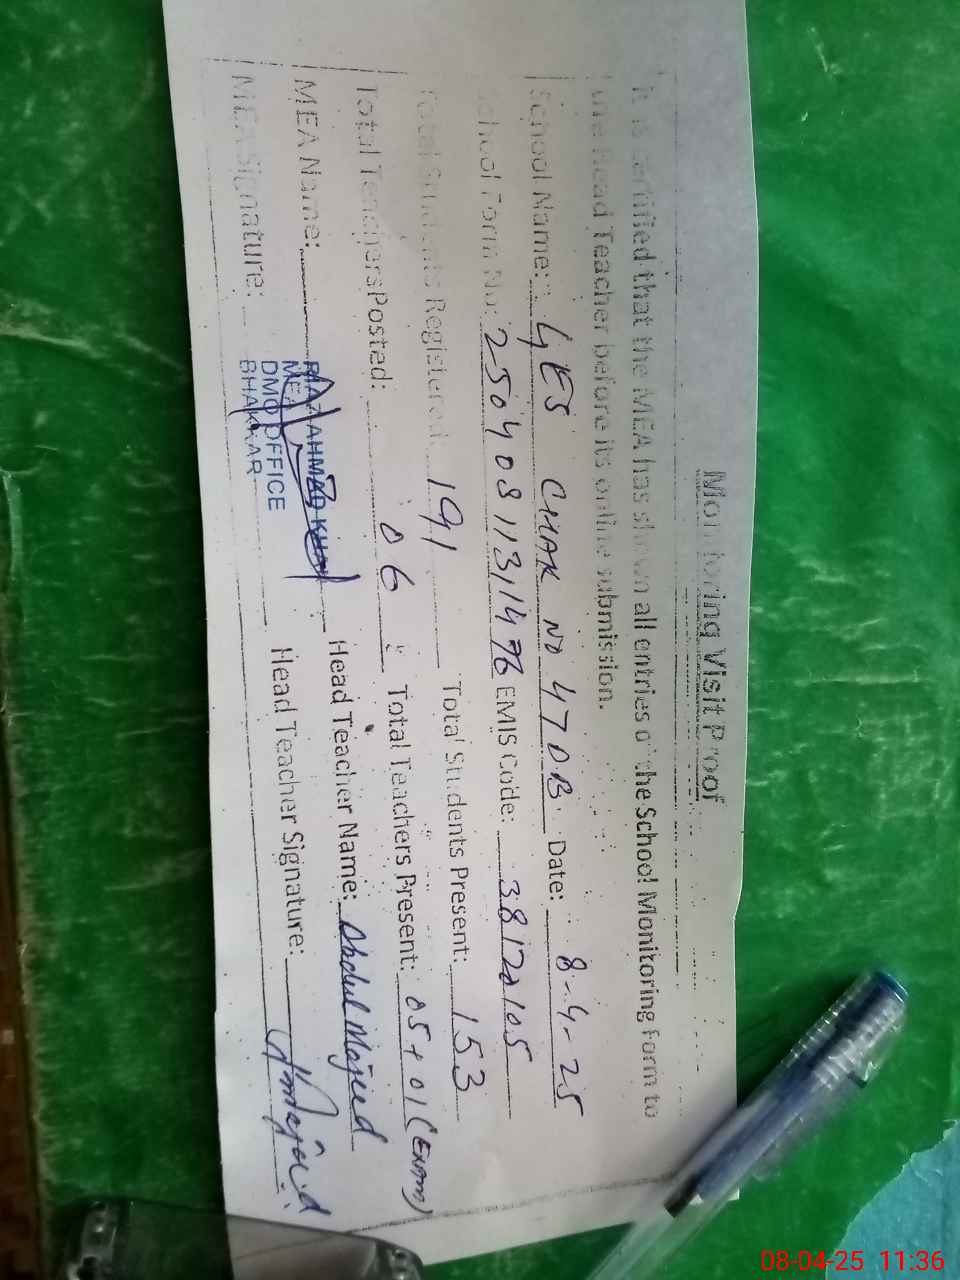 Monitoring Visit Proof
it is certified that the MEA has shown all entries of the School Monitoring Form to
the Head Teacher before its online submission.
School Name: GES CHAK NO 47DB. Date: 8-4-25
School Form No: EMIS Code: 38120105
Total Students Registered: 191 Total Students Present: 153
Total Teachers Posted: 06 Total Teachers Present: 05+01(EXAM)
MEA Name: RIAZ AHMED KHAN Head Teacher Name: Abdul Majeed
MEA
DMO OFFICE
BHAKKAR
MEA Signature: Head Teacher Signature:
08-04-25 11:36